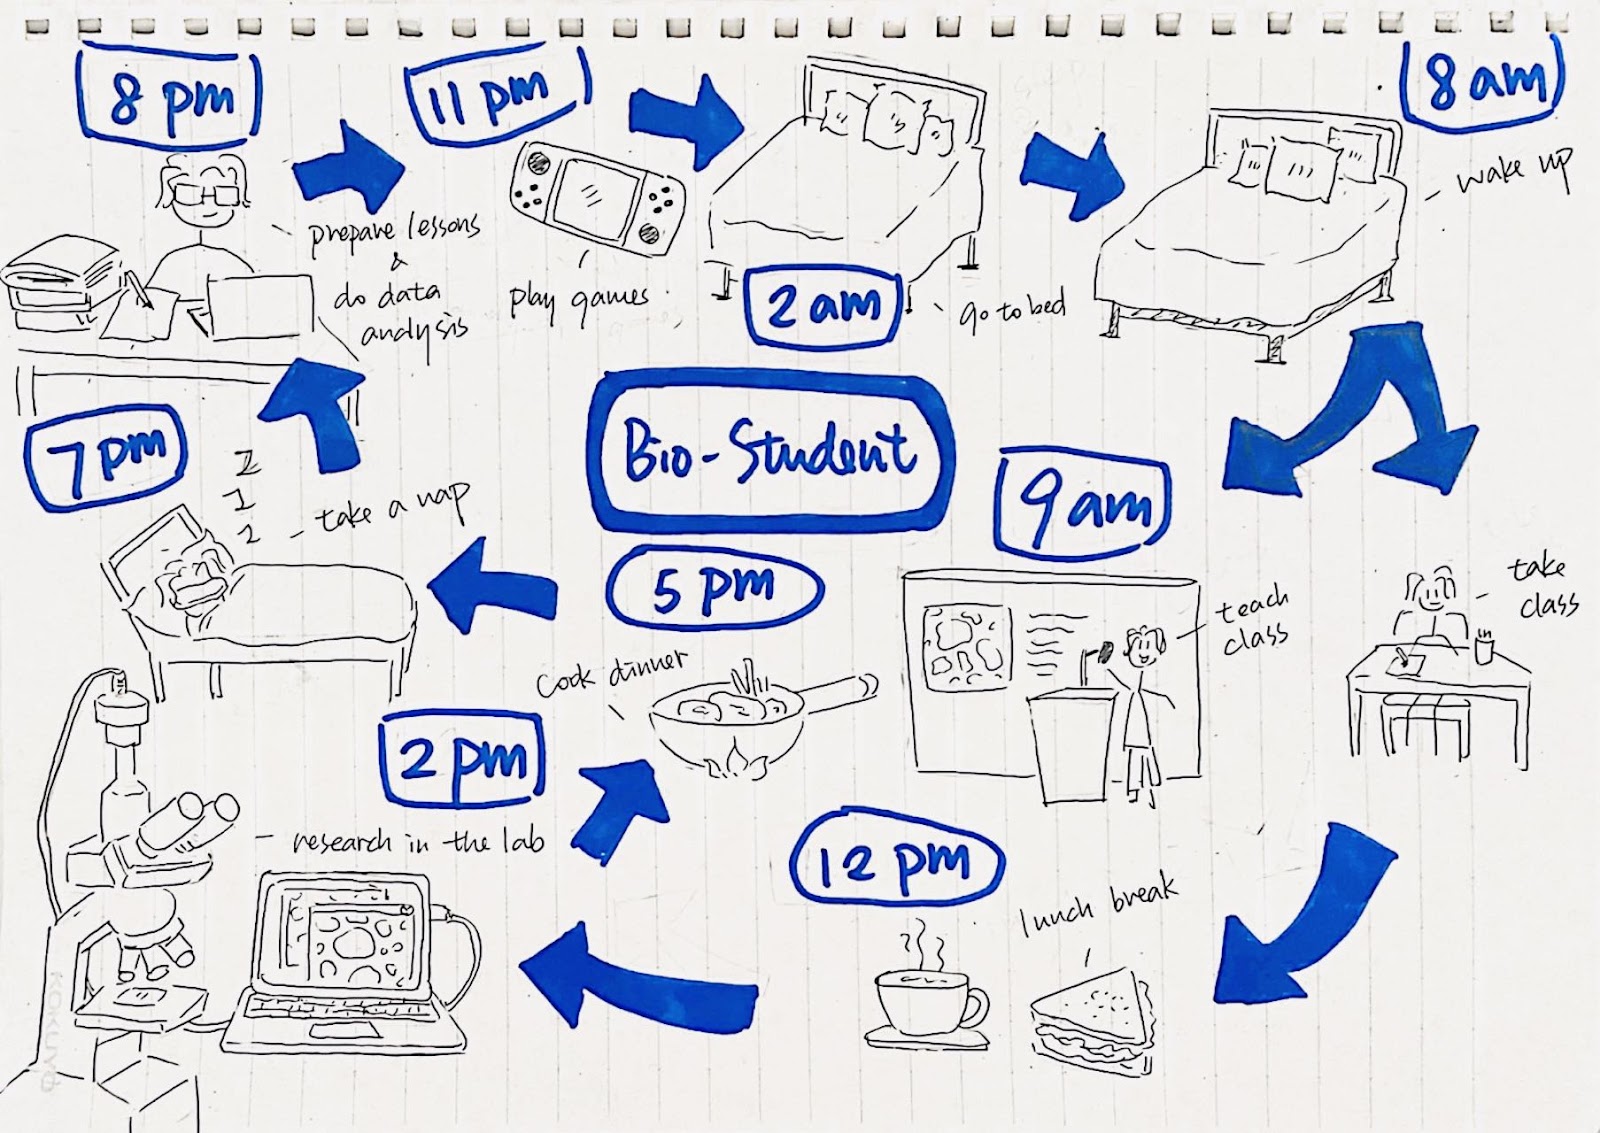 8 pm
prepare lessons
&
do data
analysis
11 pm
play games
2 am
go to bed
8 am
wake up
Bio-Student
9 am
teach
class
take
class
12 pm
lunch break
2 pm
research in the lab
5 pm
cook dinner
7 pm
take a nap
Z
Z
Z
KOKUYO